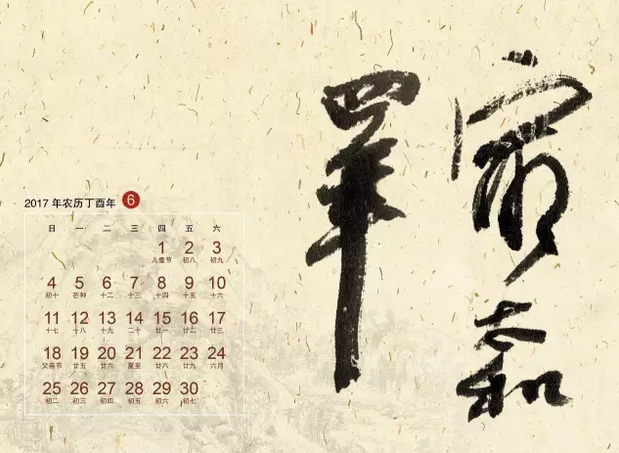 2017 年农历丁酉年 6
日 一 二 三 四 五 六
1 2 3
儿童节 初八 初九
4 5 6 7 8 9 10
初十 芒种 十二 十三 十四 十五 十六
11 12 13 14 15 16 17
十七 十八 十九 二十 廿一 廿二 廿三
18 19 20 21 22 23 24
父亲节 廿五 廿六 夏至 廿八 廿九 六月
25 26 27 28 29 30
初二 初三 初四 初五 初六 初七